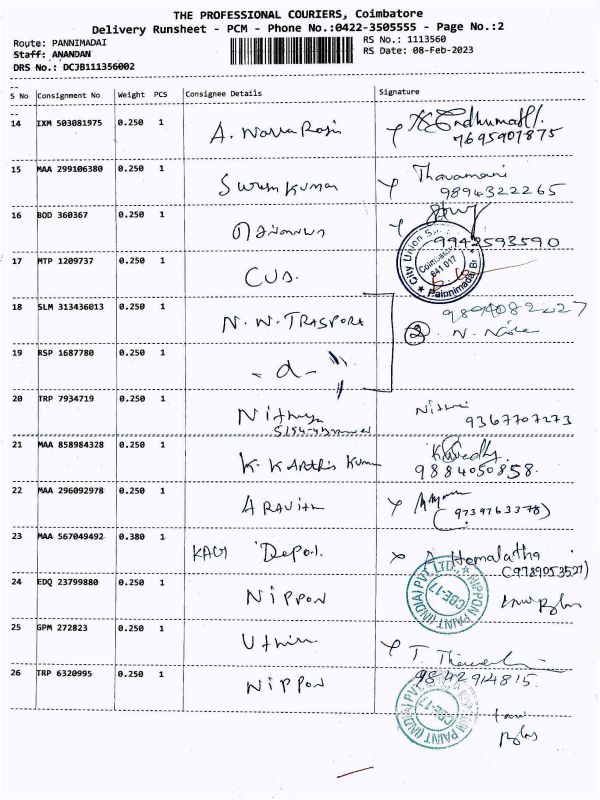 THE PROFESSIONAL COURIERS, Coimbatore
Delivery Runsheet - PCM - Phone No.:0422-3505555 - Page No.:2
Route: PANNIMADAI
RS No.: 1113560
Staff: ANANDAN
RS Date: 08-Feb-2023
DRS No.: DCJB111356002
S No Consignment No Weight PCS Consignee Details Signature
14 IXM 503081975 0.250 1
7695907875
15 MAA 299106380 0.250 1 Suresh Kumar Thavamani
9894322265
16 BOD 360367 0.250 1
9942593590
17 MTP 1209737 0.250 1 CUB.
City Union
Coimbatore
641 017
Pannimadai Br
18 SLM 313436013 0.250 1 N. N. TRASPORA
2
19 RSP 1687780 0.250 1 - d -
20 TRP 7934719 0.250 1 Nithya
9367707273
21 MAA 858984328 0.250 1 K. KARTHIS Kum
9884050858.
22 MAA 296092978 0.250 1 ARAVITH
(9739763378)
23 MAA 567049492 0.380 1 KAGI Depot. A. Hemalatha
(9789053527)
24 EDQ 23799880 0.250 1 NIPPON
NIPPON PAINT (INDIA) PVT. LTD.
CBE-17
25 GPM 272823 0.250 1
T.
9842914815.
26 TRP 6320995 0.250 1 NIPPON
NIPPON PAINT (INDIA) PVT
CBE-17